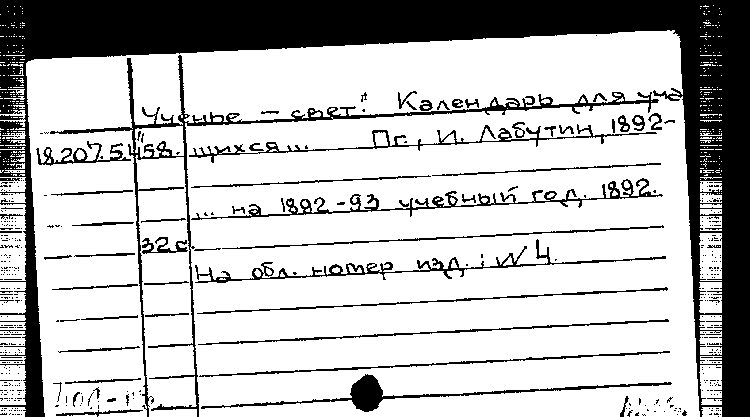 "Ученье – свет". Календарь для уча
18.207.5.158. щихся... Пг., И. Лабутин, 1892-
... на 1892-93 учебный год. 1892.
32 с.
На обл. номер изд.: № 4.